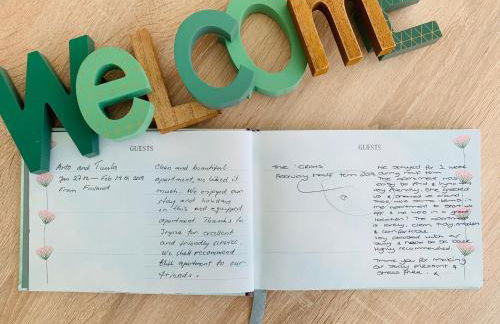 Welcome
GUESTS
Arto and Tuula
Jan 27th – Feb 19th 2019
From Finland
Clean and beautiful
apartment, we liked it
much. We enjoyed our
stay and holiday
in this well equipped
apartment. Thanks to
for excellent
and friendly service.
We shall recommend
this apartment to our
friends.
GUESTS
The
February half term 2019
We stayed for 1 week
during half term
The apartment was
easy to find &
very friendly. She greeted
us &
There were some items in
the apartment to start us
off & we were in a great
location. The apartment
is lovely, clean, tidy, modern
& comfortable.
Very pleased with our
stay &
Highly recommended.
Thank you for making
our stay pleasant &
stress free. x